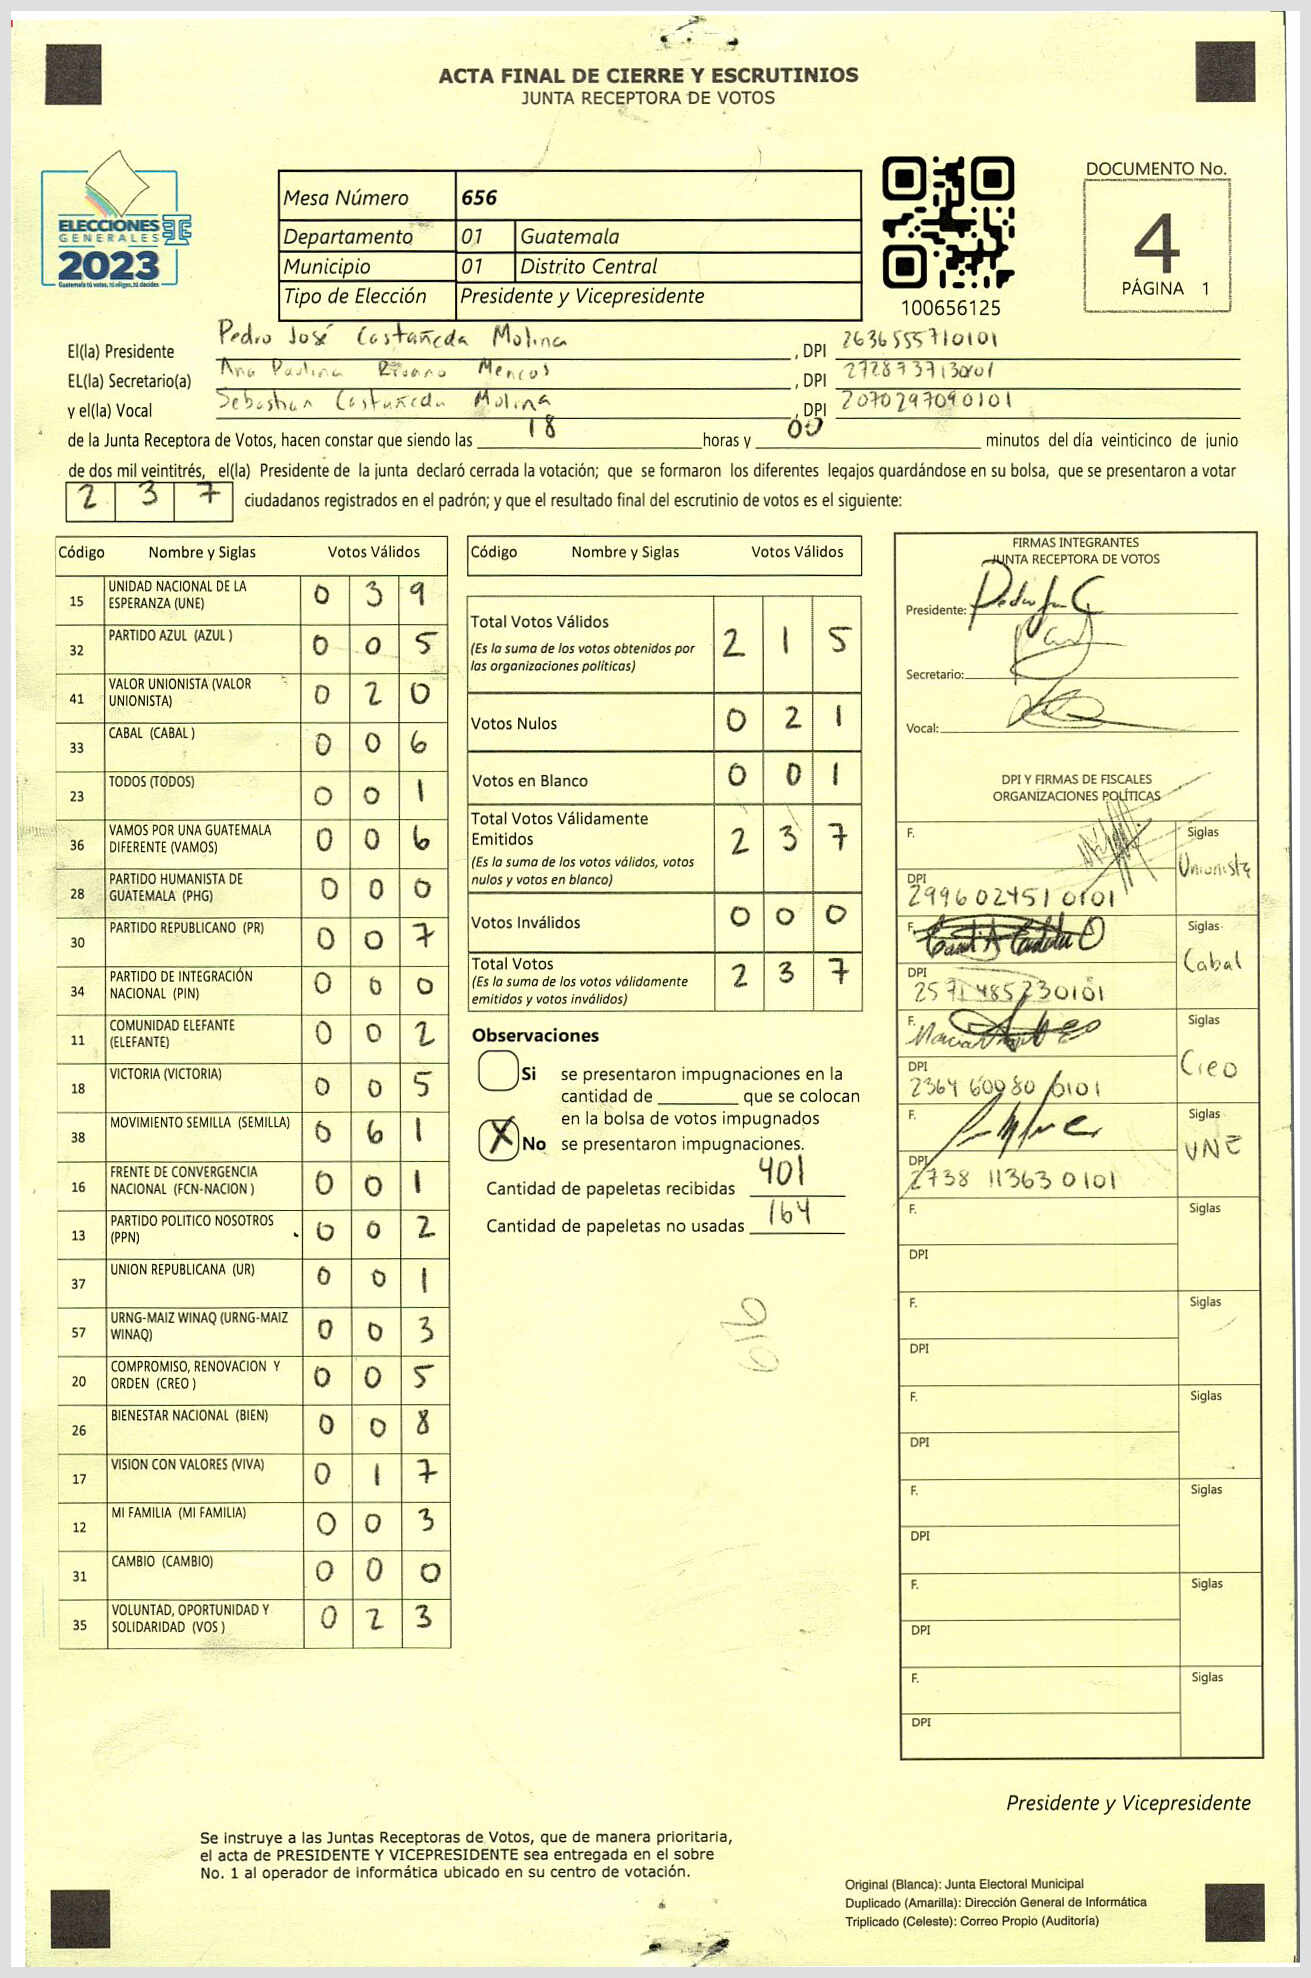 ACTA FINAL DE CIERRE Y ESCRUTINIOS
JUNTA RECEPTORA DE VOTOS
ELECCIONES
GENERALES
2023
Guatemala tú votas, tú eliges, tú decides
Mesa Número 656
Departamento 01 Guatemala
Municipio 01 Distrito Central
Tipo de Elección Presidente y Vicepresidente
100656125
DOCUMENTO No.
4
PÁGINA 1
El(la) Presidente Pedro José Castañeda Molina , DPI 2636555710101
EL(la) Secretario(a) Ana Paulina Mencos , DPI
y el(la) Vocal Sebastian Castañeda Molina , DPI 2070297090101
de la Junta Receptora de Votos, hacen constar que siendo las 18 horas y 00 minutos del día veinticinco de junio
de dos mil veintitrés, el(la) Presidente de la junta declaró cerrada la votación; que se formaron los diferentes legajos quardándose en su bolsa, que se presentaron a votar
2 3 7 ciudadanos registrados en el padrón; y que el resultado final del escrutinio de votos es el siguiente:
Código Nombre y Siglas Votos Válidos
15 UNIDAD NACIONAL DE LA ESPERANZA (UNE) 0 3 9
32 PARTIDO AZUL (AZUL ) 0 0 5
41 VALOR UNIONISTA (VALOR UNIONISTA) 0 2 0
33 CABAL (CABAL ) 0 0 6
23 TODOS (TODOS) 0 0 1
36 VAMOS POR UNA GUATEMALA DIFERENTE (VAMOS) 0 0 6
28 PARTIDO HUMANISTA DE GUATEMALA (PHG) 0 0 0
30 PARTIDO REPUBLICANO (PR) 0 0 7
34 PARTIDO DE INTEGRACIÓN NACIONAL (PIN) 0 0 0
11 COMUNIDAD ELEFANTE (ELEFANTE) 0 0 2
18 VICTORIA (VICTORIA) 0 0 5
38 MOVIMIENTO SEMILLA (SEMILLA) 0 6 1
16 FRENTE DE CONVERGENCIA NACIONAL (FCN-NACION ) 0 0 1
13 PARTIDO POLITICO NOSOTROS (PPN) 0 0 2
37 UNION REPUBLICANA (UR) 0 0 1
57 URNG-MAIZ WINAQ (URNG-MAIZ WINAQ) 0 0 3
20 COMPROMISO, RENOVACION Y ORDEN (CREO ) 0 0 5
26 BIENESTAR NACIONAL (BIEN) 0 0 8
17 VISION CON VALORES (VIVA) 0 1 7
12 MI FAMILIA (MI FAMILIA) 0 0 3
31 CAMBIO (CAMBIO) 0 0 0
35 VOLUNTAD, OPORTUNIDAD Y SOLIDARIDAD (VOS ) 0 2 3
Código Nombre y Siglas Votos Válidos
Total Votos Válidos 2 1 5
(Es la suma de los votos obtenidos por
las organizaciones políticas)
Votos Nulos 0 2 1
Votos en Blanco 0 0 1
Total Votos Válidamente
Emitidos 2 3 7
(Es la suma de los votos válidos, votos
nulos y votos en blanco)
Votos Inválidos 0 0 0
Total Votos 2 3 7
(Es la suma de los votos válidamente
emitidos y votos inválidos)
Observaciones
Si se presentaron impugnaciones en la
cantidad de ________ que se colocan
en la bolsa de votos impugnados
X No se presentaron impugnaciones.
Cantidad de papeletas recibidas 401
Cantidad de papeletas no usadas 164
FIRMAS INTEGRANTES
JUNTA RECEPTORA DE VOTOS
Presidente:
Secretario:
Vocal:
DPI Y FIRMAS DE FISCALES
ORGANIZACIONES POLÍTICAS
F. Siglas
Unionista
DPI
2996024510101
F. Siglas
Cabal
DPI
2571485230101
F. Siglas
Creo
DPI
2364600800101
F. Siglas
UNE
DPI
2738113630101
F. Siglas
DPI
F. Siglas
DPI
F. Siglas
DPI
F. Siglas
DPI
F. Siglas
DPI
F. Siglas
DPI
Presidente y Vicepresidente
Se instruye a las Juntas Receptoras de Votos, que de manera prioritaria,
el acta de PRESIDENTE Y VICEPRESIDENTE sea entregada en el sobre
No. 1 al operador de informática ubicado en su centro de votación.
Original (Blanca): Junta Electoral Municipal
Duplicado (Amarilla): Dirección General de Informática
Triplicado (Celeste): Correo Propio (Auditoría)